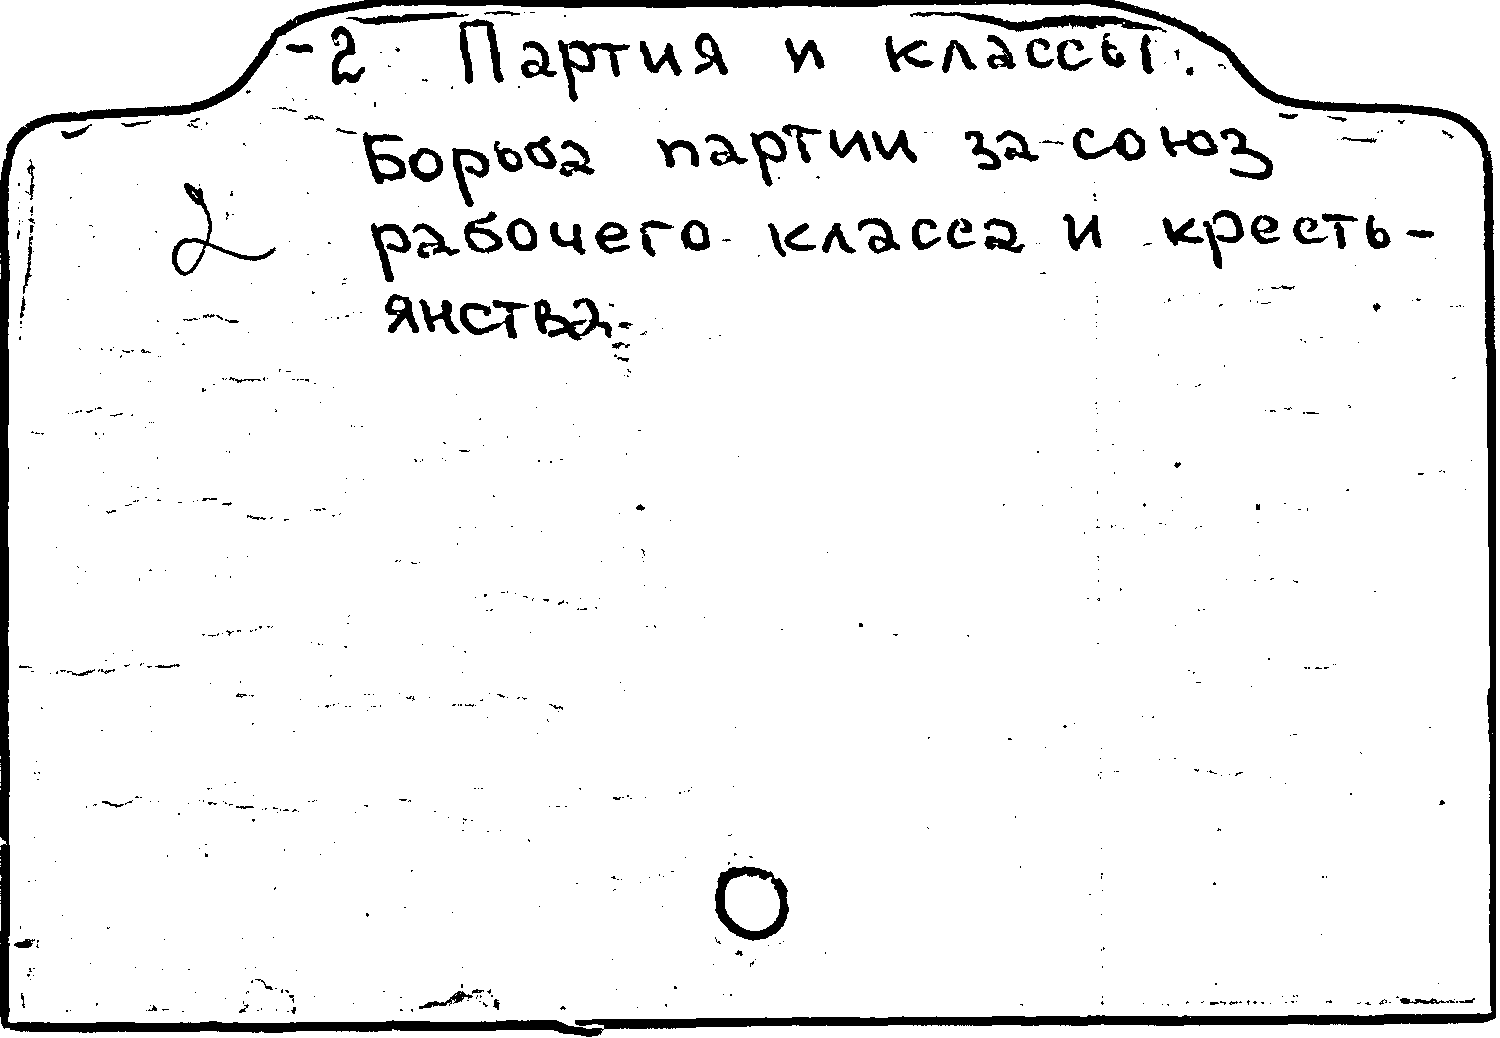 -2 Партия и классы.
Борьба партии за союз
2 рабочего класса и кресть-
янства.